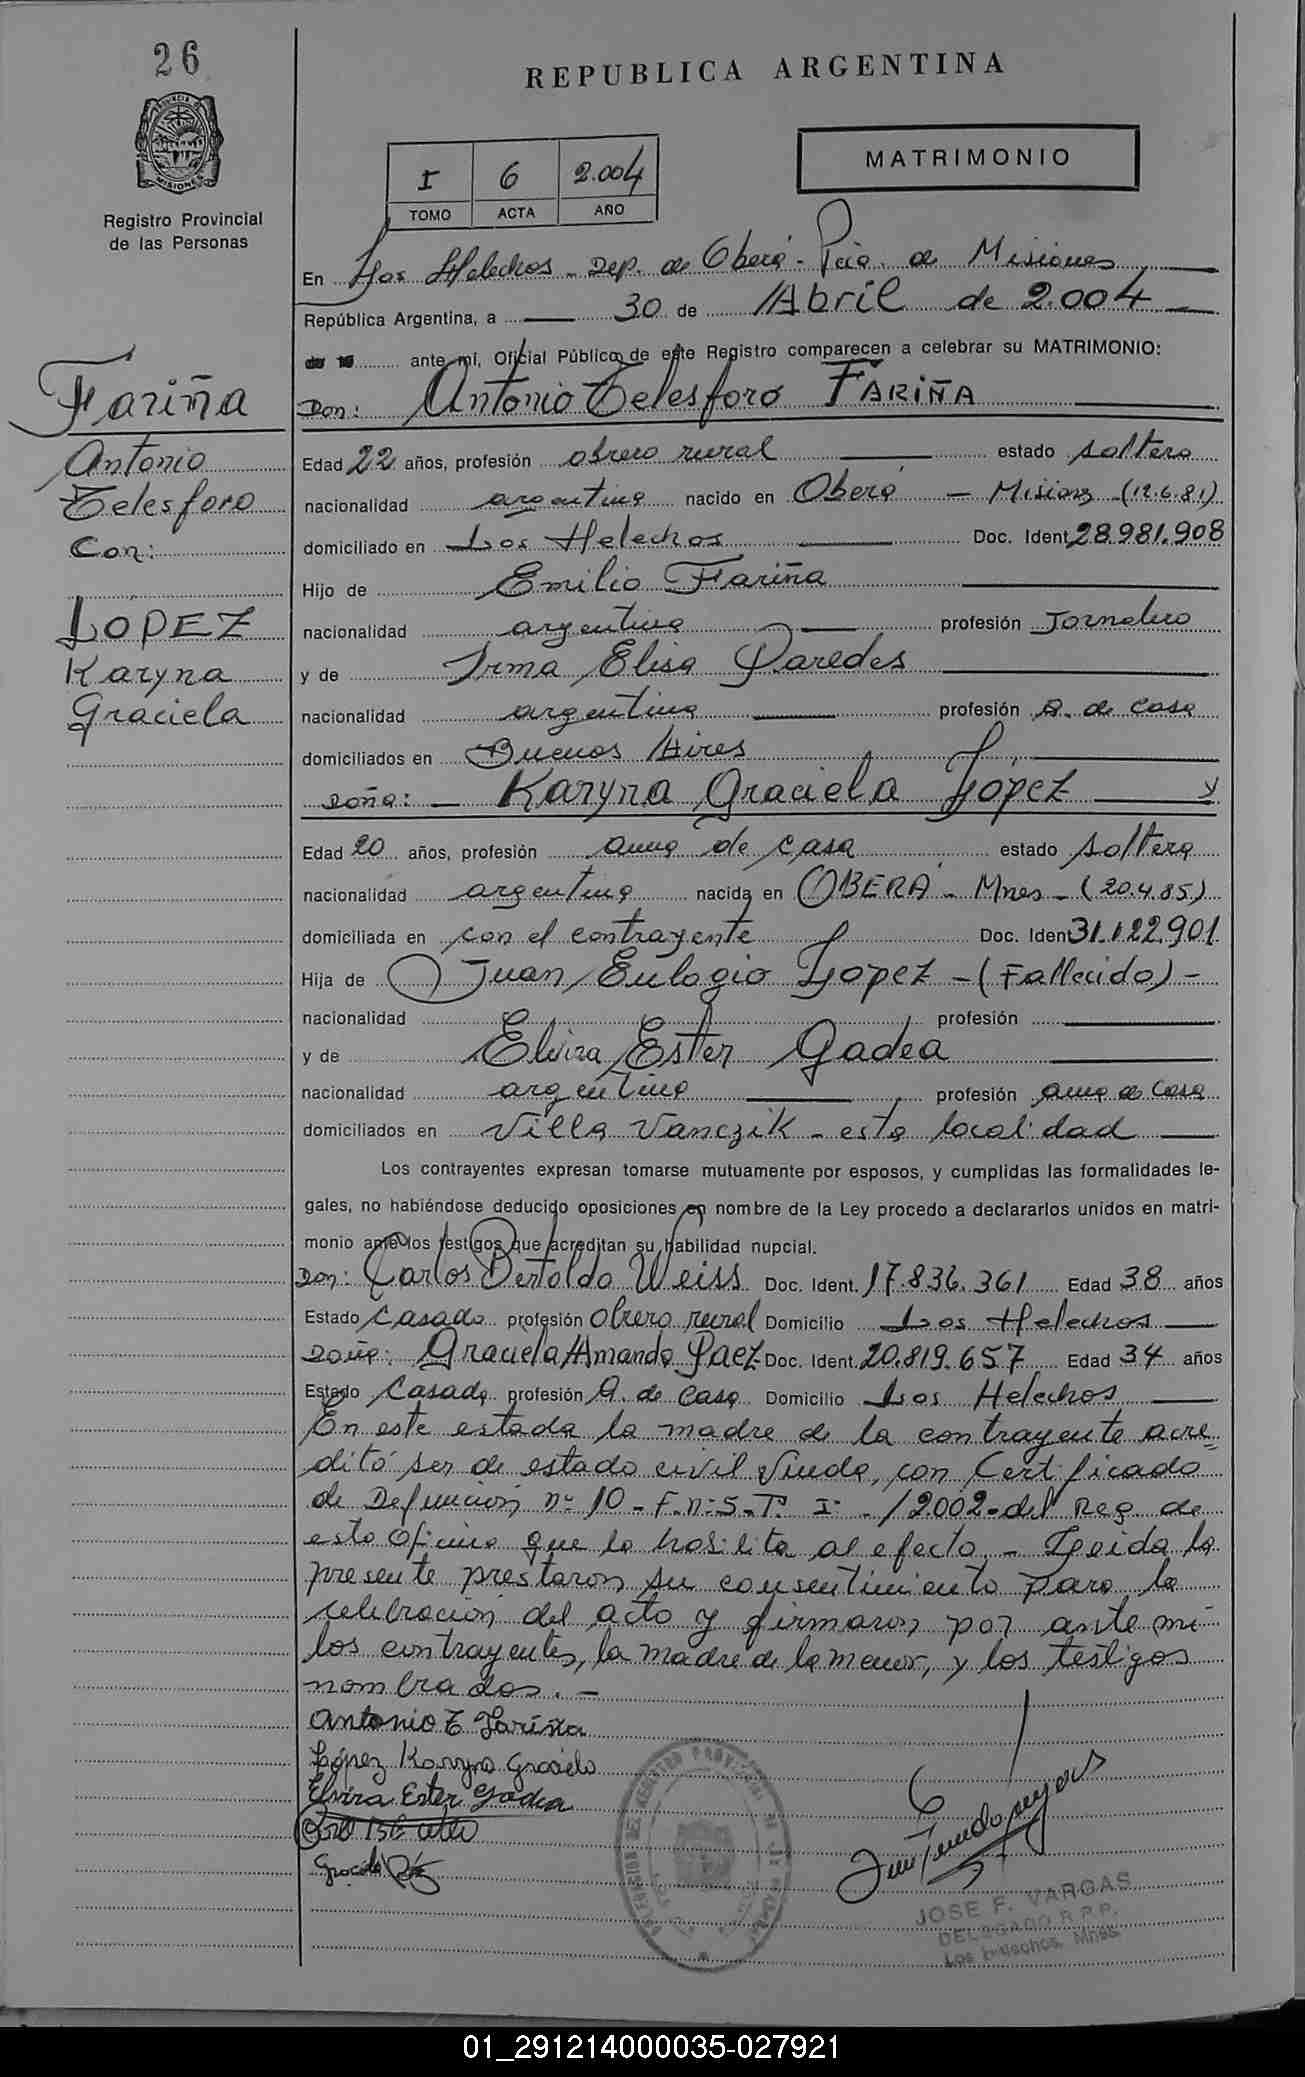 26
REPUBLICA ARGENTINA
PROVINCIA DE
MISIONES
MATRIMONIO
I 6 2.004
TOMO ACTA AÑO
Registro Provincial
de las Personas
En Los Helechos - Dep. de Oberá - Pcia. de Misiones
República Argentina, a 30 de Abril de 2.004
de 19 ante mí, Oficial Público de este Registro comparecen a celebrar su MATRIMONIO:
Fariña
Antonio
Telesforo
Con:
LOPEZ
Karyna
Graciela
Don: Antonio Telesforo FARIÑA
Edad 22 años, profesión obrero rural estado soltero
nacionalidad argentina nacido en Oberá - Misiones - (12.6.81)
domiciliado en Los Helechos Doc. Ident. 28.981.908
Hijo de Emilio Fariña
nacionalidad argentina profesión Jornalero
y de Irma Elisa Paredes
nacionalidad argentina profesión A. de casa
domiciliados en Buenos Aires
Doña: - Karyna Graciela López y
Edad 20 años, profesión ama de casa estado soltera
nacionalidad argentina nacida en OBERÁ - Mnes - (20.4.85)
domiciliada en con el contrayente Doc. Iden 31.122.901
Hija de Juan Eulogio Lopez - (Fallecido) -
nacionalidad profesión
y de Elvira Ester Gadea
nacionalidad argentina profesión ama de casa
domiciliados en Villa Vanczik - esta localidad
Los contrayentes expresan tomarse mutuamente por esposos, y cumplidas las formalidades le-
gales, no habiéndose deducido oposiciones en nombre de la Ley procedo a declararlos unidos en matri-
monio ante los testigos que acreditan su habilidad nupcial.
Don: Carlos Bertoldo Weiss Doc. Ident. 17.836.361 Edad 38 años
Estado Casado profesión Obrero rural Domicilio Los Helechos
Doña: Graciela Amanda Paez Doc. Ident. 20.819.657 Edad 34 años
Estado Casada profesión A. de casa Domicilio Los Helechos
En este estado la madre de la contrayente acre-
ditó ser de estado civil Viuda, con Certificado
de Defunción nº 10 - F.nº 5 - Tº I - /2002 - del Reg. de
esta Oficina que la habilita al efecto. - Leida la
presente prestaron su consentimiento para la
celebración del acto y firmaron por ante mi
los contrayentes, la madre de la menor, y los testigos
nombrados. -
Antonio T Fariña
López Karyna Graciela
Elvira Ester Gadea
Graciela Páez
JOSE F. VARGAS
DELEGADO R.P.P.
Los Helechos, Mnes.
01_291214000035-027921